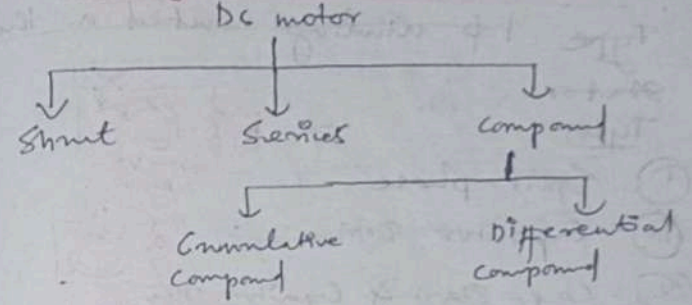 DC motor
Shunt Series Compound
Cumulative compound
Differential compound